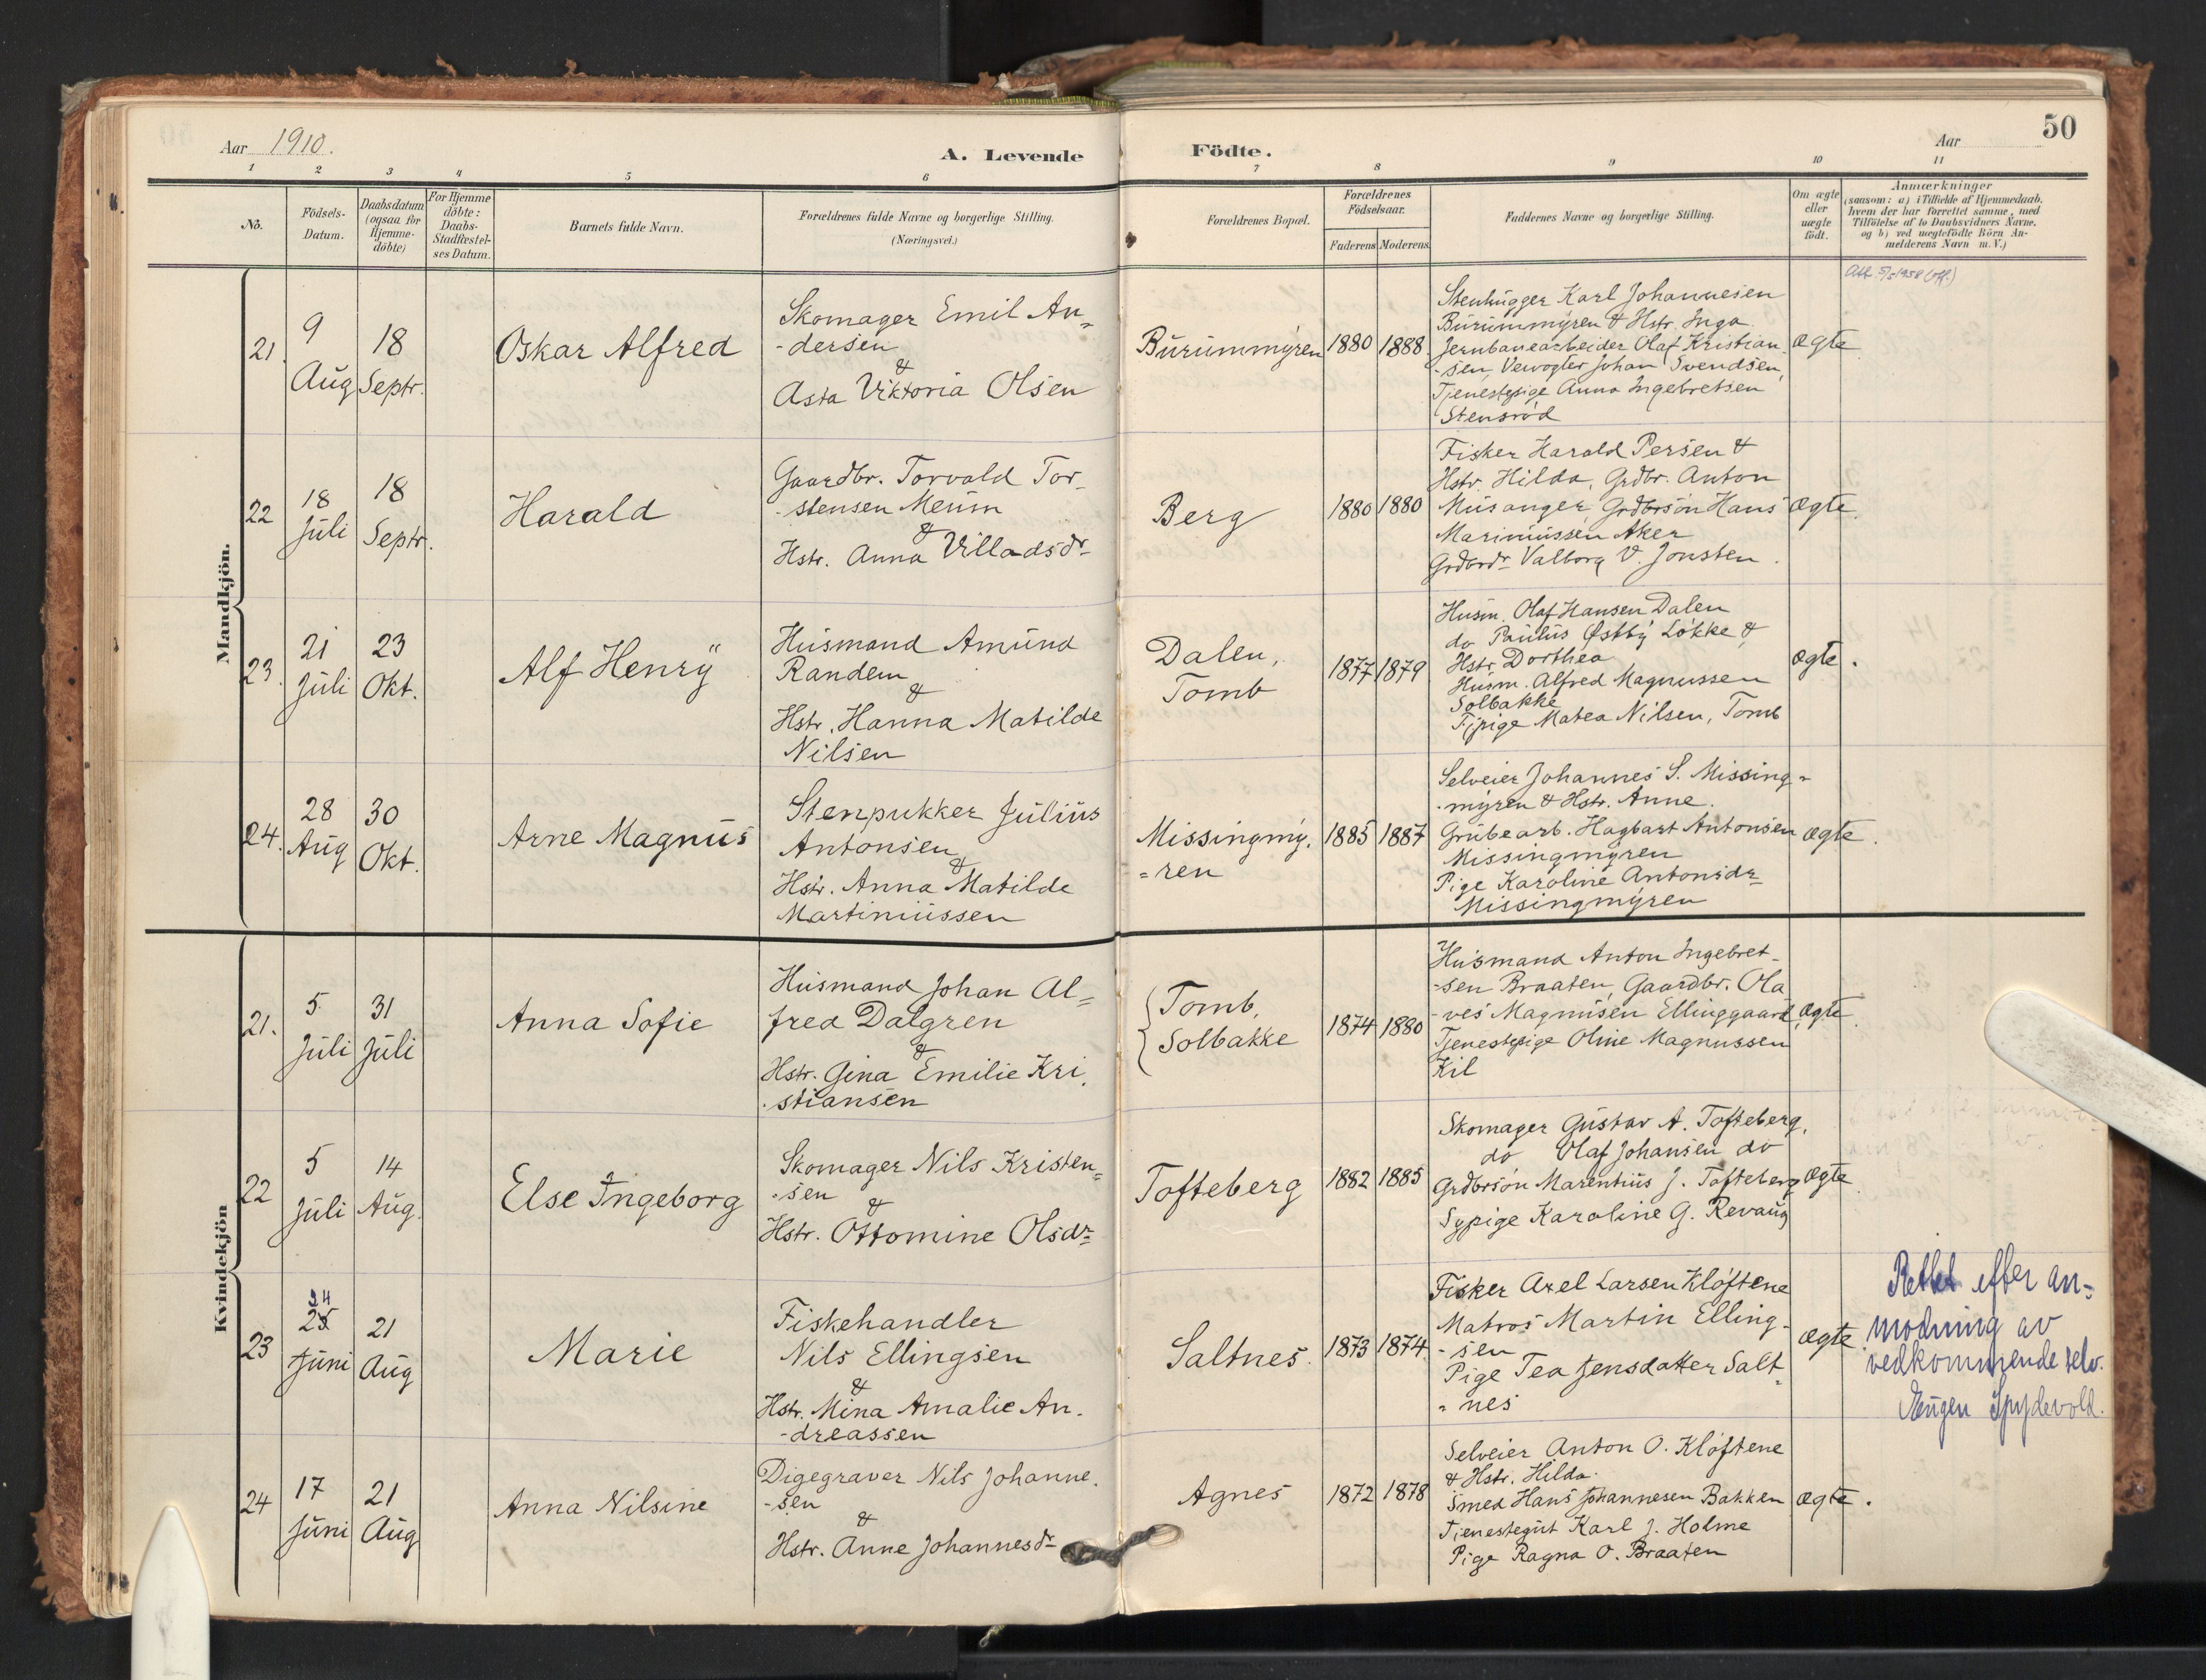 50
Aar 1910.
A. Levende Födte.
Aar
1 2 3 4 5 6 7 8 9 10 11
No.
Födsels-
Datum.
Daabsdatum
(ogsaa for
Hjemme-
döbte)
For Hjemme
döbte:
Daabs-
Stadfæstel-
ses Datum.
Barnets fulde Navn.
Forældrenes fulde Navne og borgerlige Stilling.
(Næringsvei.)
Forældrenes Bopæl.
Forældrenes
Födselsaar.
Faderens
Moderens
Faddernes Navne og borgerlige Stilling.
Om ægte
eller
uægte
födt.
Anmærkninger
(saasom: a) i Tilfælde af Hjemmedaab,
hvem der har forrettet samme, med
Tilföielse af to Daabsvidners Navne,
og b) ved uægtefödte Börn An-
melderens Navn m. V.)
Mandkjön.
21.
9
Aug
18
Septr.
Oskar Alfred
Skomager Emil An-
-dersen
&
Asta Viktoria Olsen
Burummyren
1880
1888
Stenhugger Karl Johannesen
Burummyren & Hstr. Inga
Jernbanearbeider Olaf Kristian-
-sen, Veivogter Johan Svendsen,
Tjenestepige Anna Ingebretsen
Stensrød
ægte
Att. 5/5 1958 (off.)
22
18
Juli
18
Septr.
Harald
Gaardbr. Torvald Tor-
-stensen Meum
&
Hstr. Anna Villadsdr
Berg
1880
1880
Fisker Harald Persen &
Hstr. Hilda, Grdbr. Anton
Musanger, Grdbrsön Hans
Marinussen Aker
Grdbrdr Valborg V. Jonsten.
ægte.
23.
21
Juli
23
Okt.
Alf Henry
Husmand Amund
Randem
&
Hstr. Hanna Matilde
Nilsen
Dalen,
Tomb
1877
1879
Husm. Olaf Hansen Dalen
do Paulus Østby Løkke &
Hstr. Dorthea
Husm. Alfred Magnussen
Solbakke
Tjpige Matea Nilsen, Tomb
ægte.
24.
28
Aug
30
Okt.
Arne Magnus
Stenpukker Julius
Antonsen
&
Hstr. Anna Matilde
Martinussen
Missingmy.
=ren
1885
1887
Selveier Johannes S. Missing-
-myren & Hstr. Anne.
Grubearb. Hagbart Antonsen
Missingmyren
Pige Karoline Antonsdr
Missingmyren
ægte.
Kvindekjön
21.
5
Juli
31
Juli
Anna Sofie
Husmand Johan Al=
fred Dalgren
&
Hstr. Gina Emilie Kri.
.stiansen
Tomb,
Solbakke
1874
1880
Husmand Anton Ingebret-
-sen Braaten, Gaardbr. Ola
-ves Magnusen Ellinggaard,
Tjenestepige Oline Magnussen
Kil
ægte.
22
5
Juli
14
Aug.
Else Ingeborg
Skomager Nils Kristen=
-sen
&
Hstr. Ottomine Olsdr
Tofteberg
1882
1885
Skomager Gustav A. Tofteberg,
do Olaf Johansen do
Grdbrsön Marentius J. Tofteberg
Sypige Karoline G. Revaug
ægte.
23
24
25
Juni
21
Aug
Marie
Fiskehandler
Nils Ellingsen
&
Hstr. Mina Amalie An.
-dreassen
Saltnes.
1873
1874
Fisker Axel Larsen Kløftene
Matros Martin Elling-
-sen
Pige Tea Jensdatter Salt-
=nes
ægte.
Rettet efter an-
modning av
vedkommende selv.
Eugen Spydevold.
24
17
Juni
21
Aug
Anna Nilsine
Digegraver Nils Johanne.
-sen
&
Hstr. Anne Johannesdr
Agnes
1872
1878
Selveier Anton O. Kløftene
& Hstr. Hilda.
Smed Hans Johannesen Bakken
Tjenestegut Karl J. Holme
Pige Ragna O. Braaten
ægte.